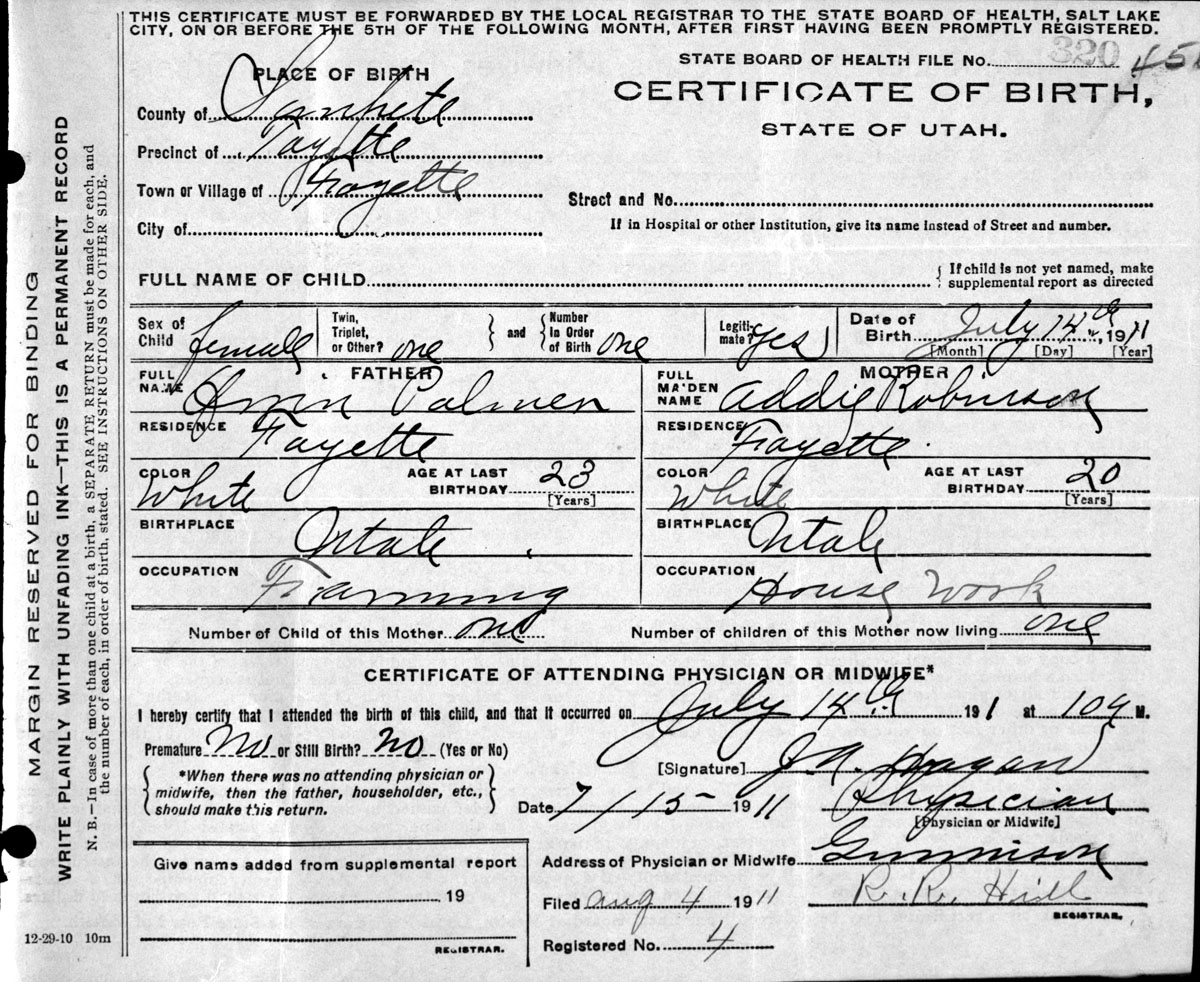 THIS CERTIFICATE MUST BE FORWARDED BY THE LOCAL REGISTRAR TO THE STATE BOARD OF HEALTH, SALT LAKE
CITY, ON OR BEFORE THE 5TH OF THE FOLLOWING MONTH, AFTER FIRST HAVING BEEN PROMPTLY REGISTERED.
STATE BOARD OF HEALTH FILE No. 320
CERTIFICATE OF BIRTH,
STATE OF UTAH.
PLACE OF BIRTH
County of Sanpete
Precinct of Fayette
Town or Village of Fayette
City of
Street and No.
If in Hospital or other Institution, give its name instead of Street and number.
FULL NAME OF CHILD
If child is not yet named, make
supplemental report as directed
Sex of Child female Twin, Triplet, or Other? one and Number in Order of Birth one Legitimate? yes Date of Birth July 14th, 1911
[Month] [Day] [Year]
FATHER MOTHER
FULL NAME Palmer FULL MAIDEN NAME Addie Robinson
RESIDENCE Fayette RESIDENCE Fayette
COLOR White AGE AT LAST BIRTHDAY 23 [Years] COLOR White AGE AT LAST BIRTHDAY 20 [Years]
BIRTHPLACE Utah BIRTHPLACE Utah
OCCUPATION Farming OCCUPATION House Work
Number of Child of this Mother one Number of children of this Mother now living one
CERTIFICATE OF ATTENDING PHYSICIAN OR MIDWIFE*
I hereby certify that I attended the birth of this child, and that it occurred on July 14th 191 1 at 10 a M.
Premature No or Still Birth? No (Yes or No)
*When there was no attending physician or
midwife, then the father, householder, etc.,
should make this return.
[Signature] J. A. Hagan
Date 7/15 1911 Physician
[Physician or Midwife]
Address of Physician or Midwife Gunnison
Filed Aug 4 1911 R. R. Hill
REGISTRAR.
Registered No. 4
Give name added from supplemental report
19
REGISTRAR.
12-29-10 10m
MARGIN RESERVED FOR BINDING
WRITE PLAINLY WITH UNFADING INK—THIS IS A PERMANENT RECORD
N. B.—In case of more than one child at a birth, a SEPARATE RETURN must be made for each, and
the number of each, in order of birth, stated. SEE INSTRUCTIONS ON OTHER SIDE.